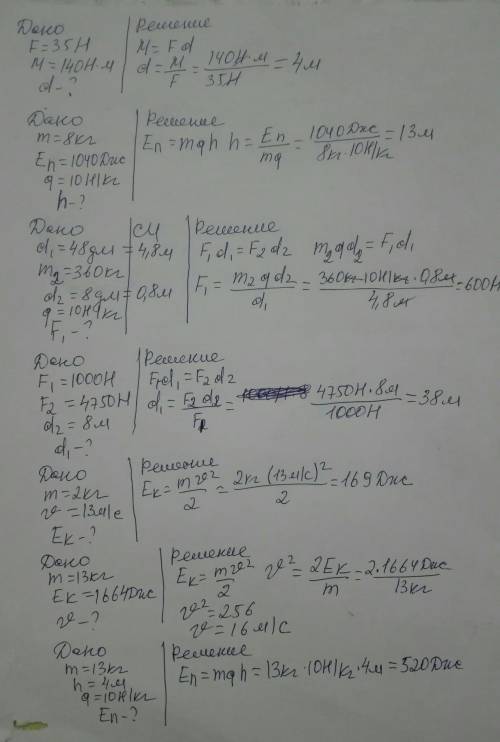 Дано
F = 35Н
М = 140Н·м
d - ?
Решение
M = Fd
d = M/F = 140Н·м/35Н = 4м
Дано
m = 8кг
Еп = 1040Дж
g = 10Н/кг
h - ?
Решение
Еп = mgh h = Еп/mg = 1040Дж/8кг·10Н/кг = 13м
Дано
d₁ = 48дм = 4,8м
m₂ = 360кг
d₂ = 8дм = 0,8м
g = 10Н/кг
F₁ - ?
СИ
Решение
F₁d₁ = F₂d₂ m₂gd₂ = F₁d₁
F₁ = m₂gd₂/d₁ = 360кг·10Н/кг·0,8м/4,8м = 600Н
Дано
F₁ = 1000Н
F₂ = 4750Н
d₂ = 8м
d₁ - ?
Решение
F₁d₁ = F₂d₂
d₁ = F₂d₂/F₁ = 4750Н·8м/1000Н = 38м
Дано
m = 2кг
v = 13м/с
Ек - ?
Решение
Ек = mv²/2 = 2кг(13м/с)²/2 = 169Дж
Дано
m = 13кг
Ек = 1664Дж
v - ?
Решение
Ек = mv²/2 v² = 2Ек/m = 2·1664Дж/13кг
v² = 256
v = 16м/с
Дано
m = 13кг
h = 4м
g = 10Н/кг
Еп - ?
Решение
Еп = mgh = 13кг·10Н/кг·4м = 520Дж